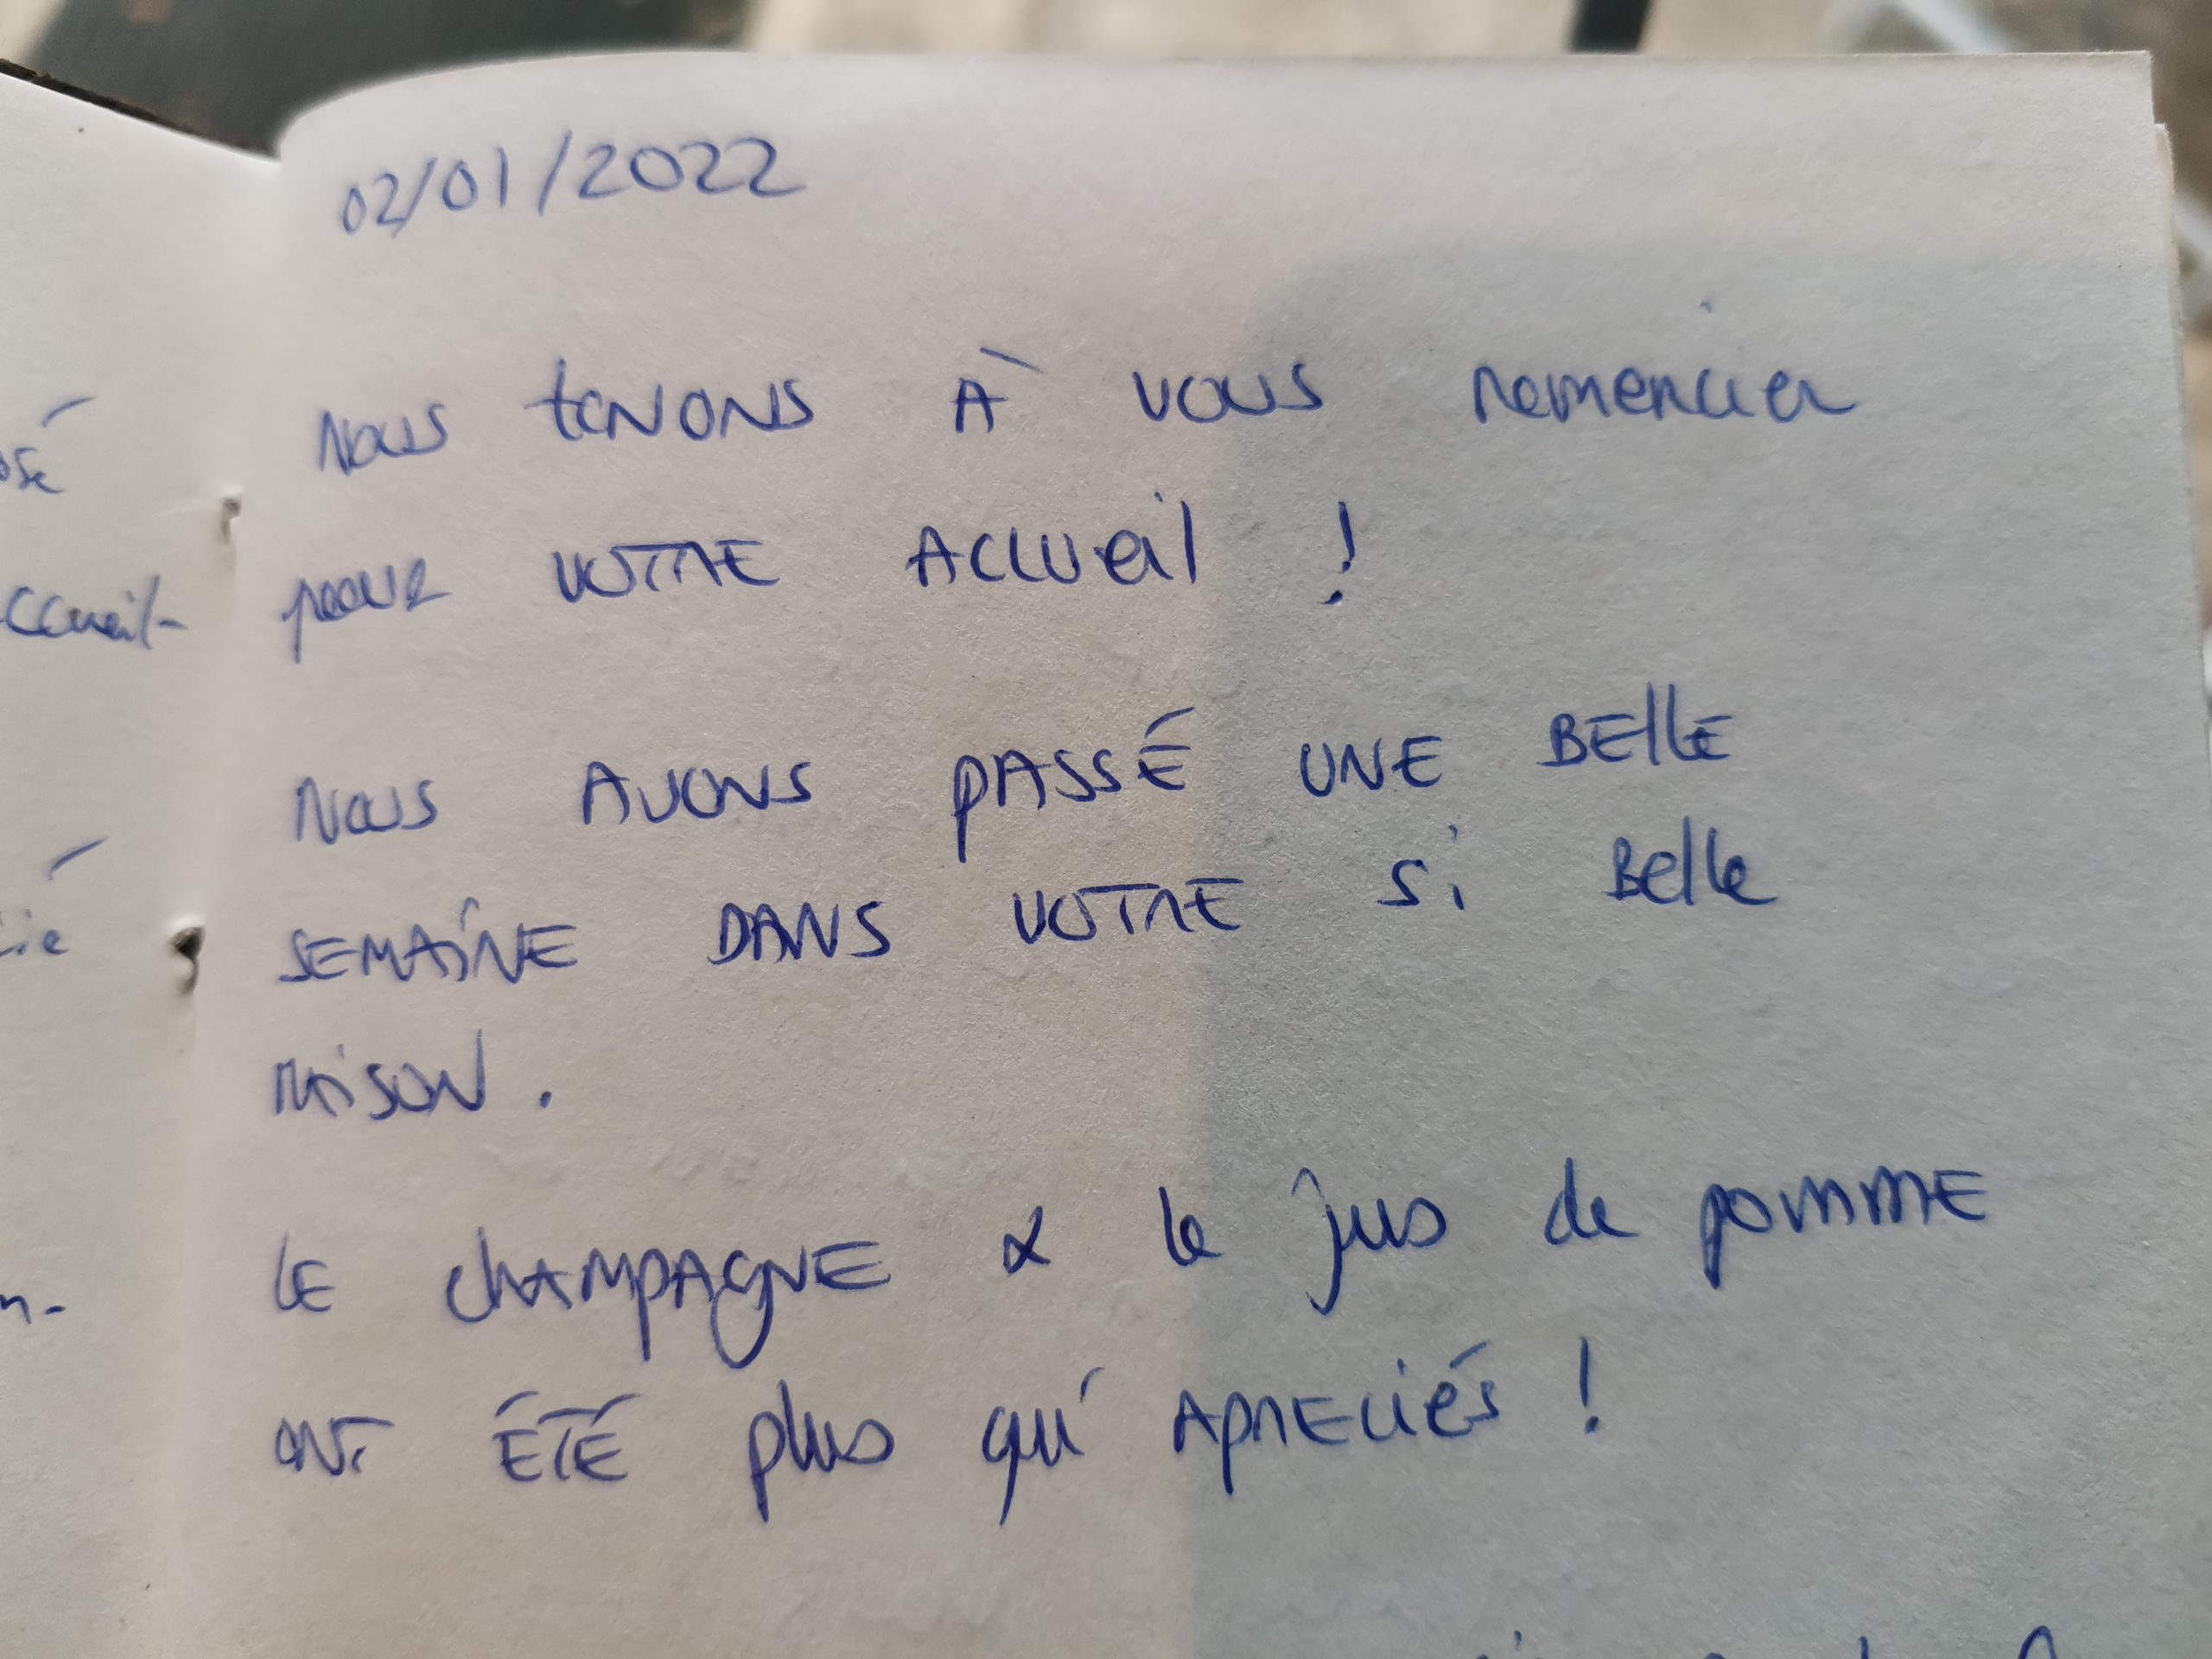 02/01/2022
Nous tenons à vous remercier
pour votre accueil !
Nous avons passé une belle
semaine dans votre si belle
maison.
Le champagne & le jus de pomme
ont été plus qu'apreciés !